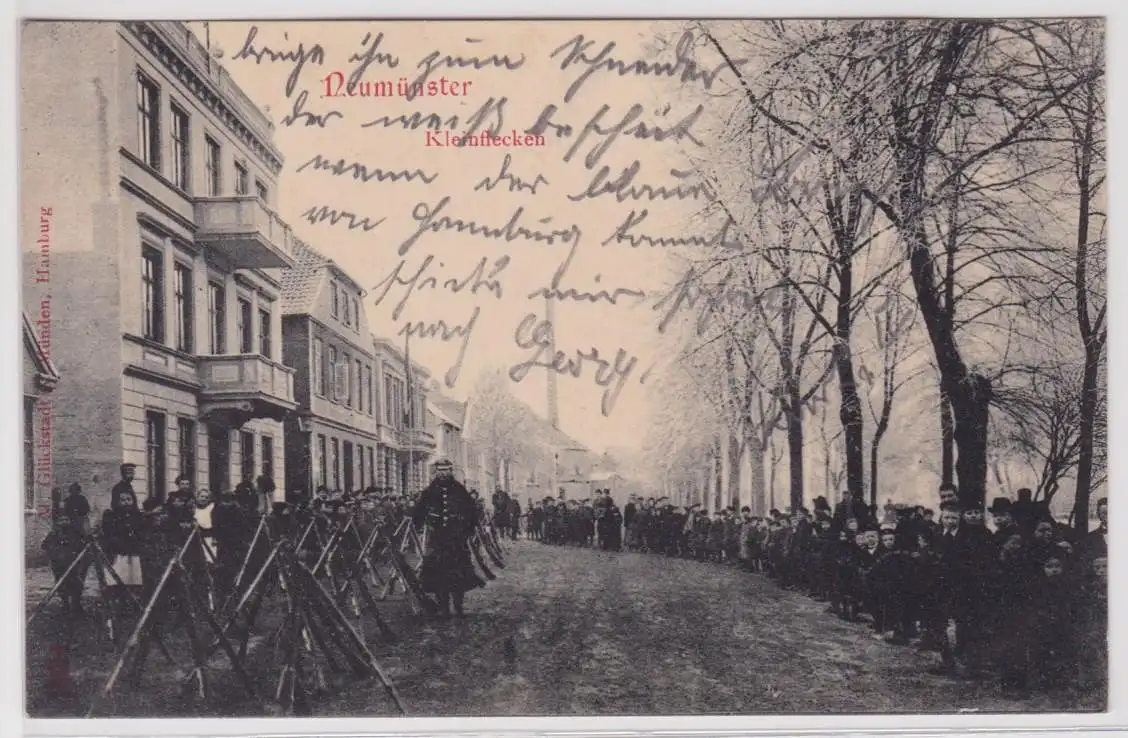 bringe ihn zum Schneider
Neumünster
der weiß bescheit
Kleinflecken
wenn der blaue
von Hamburg kommt
schickt mir
nach Georg.
M. Glückstadt & Münden, Hamburg